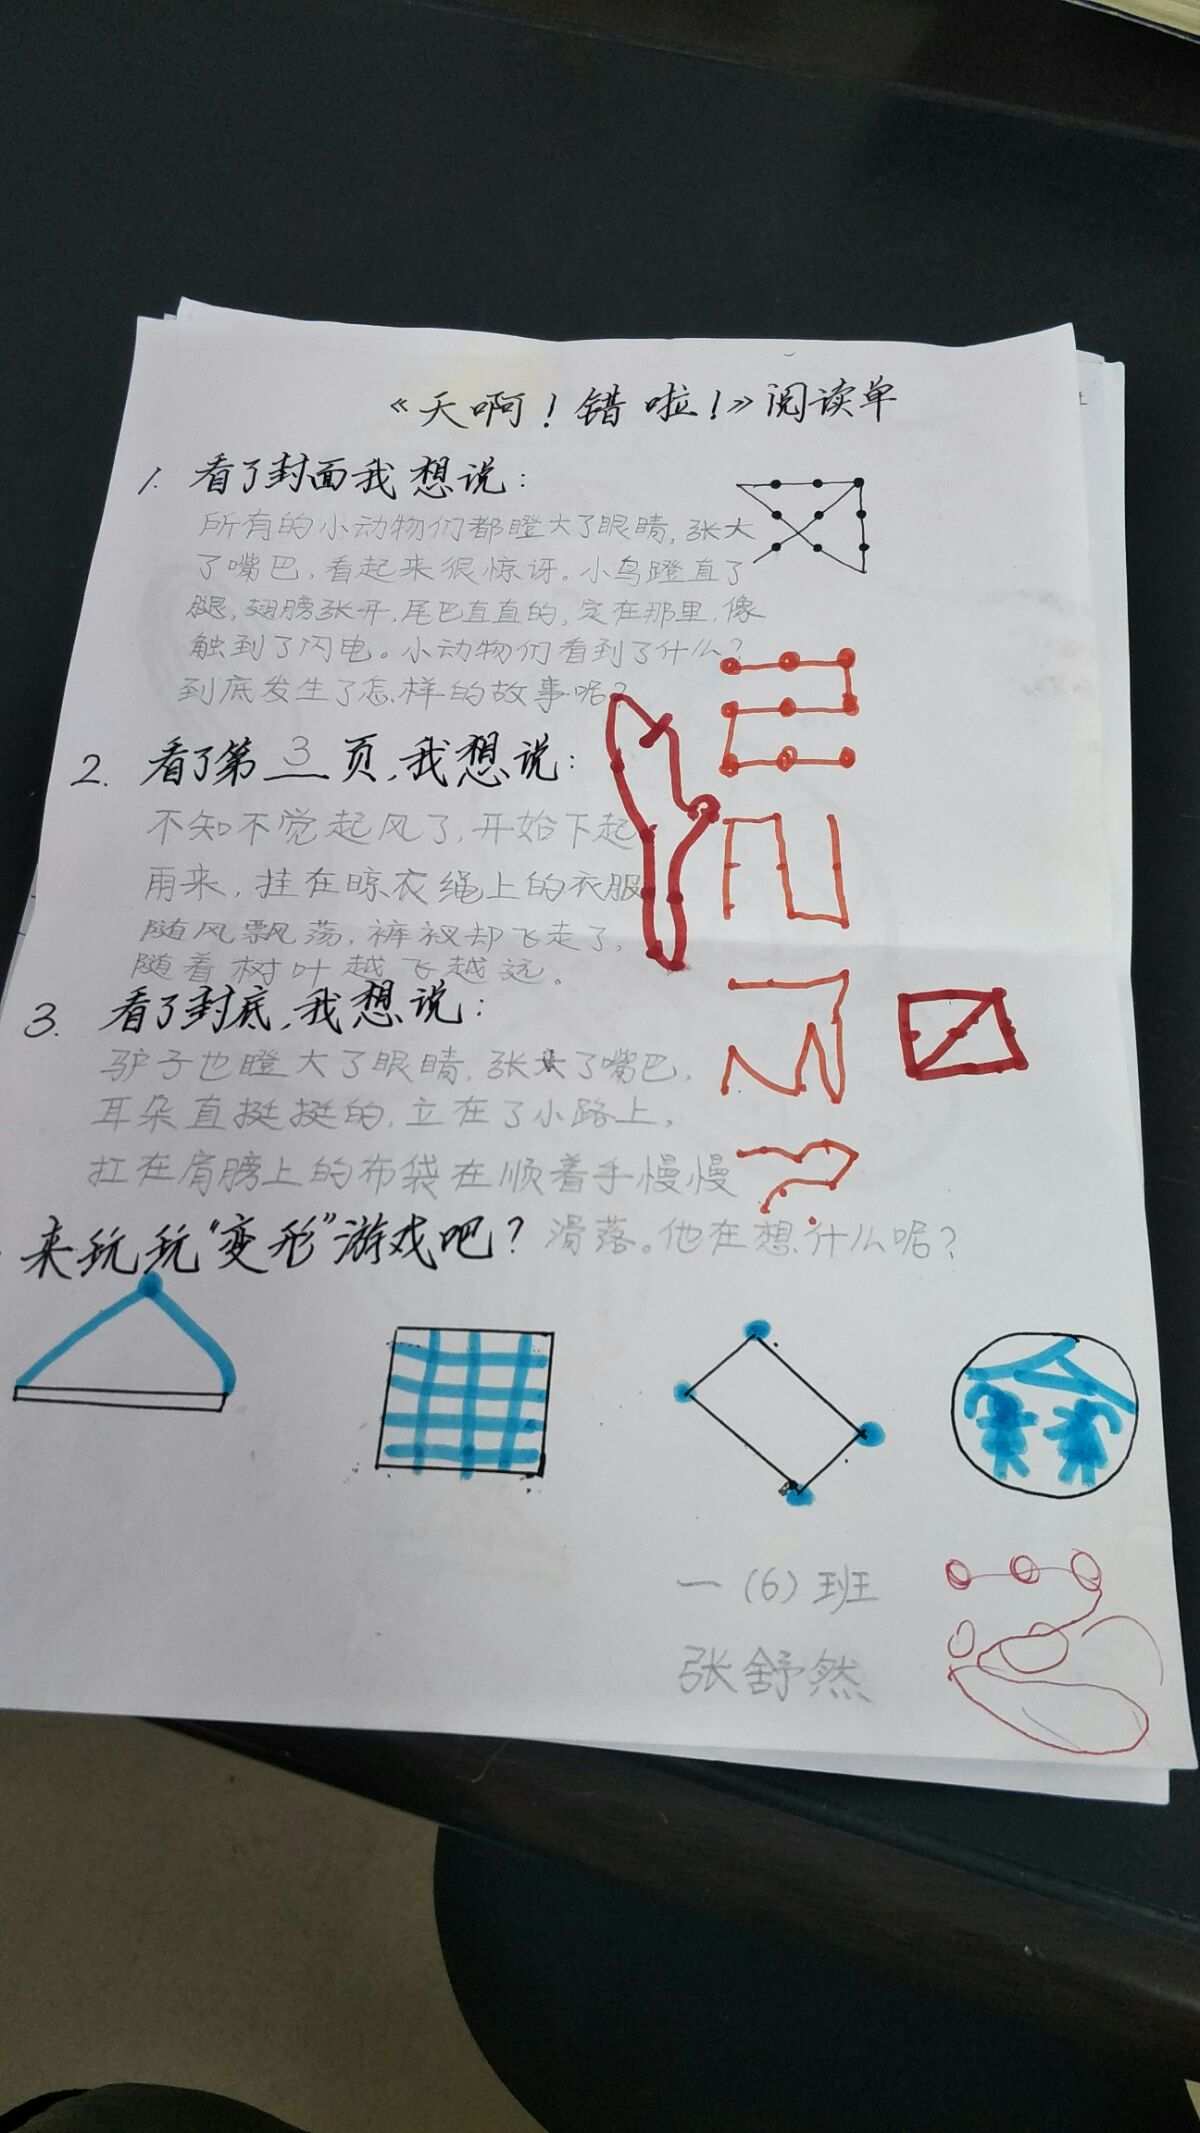 《天啊！错啦！》阅读单
1. 看了封面我想说：
所有的小动物们都瞪大了眼睛，张大
了嘴巴，看起来很惊讶。小鸟蹬直了
腿，翅膀张开，尾巴直直的，定在那里，像
触到了闪电。小动物们看到了什么？
到底发生了怎样的故事呢？
2. 看了第3页，我想说：
不知不觉起风了，开始下起
雨来，挂在晾衣绳上的衣服
随风飘荡，裤衩却飞走了，
随着树叶越飞越远。
3. 看了封底，我想说：
驴子也瞪大了眼睛，张大了嘴巴，
耳朵直挺挺的，立在了小路上，
扛在肩膀上的布袋在顺着手慢慢
滑落。他在想什么呢？
来玩玩“变形”游戏吧？
一（6）班
张舒然